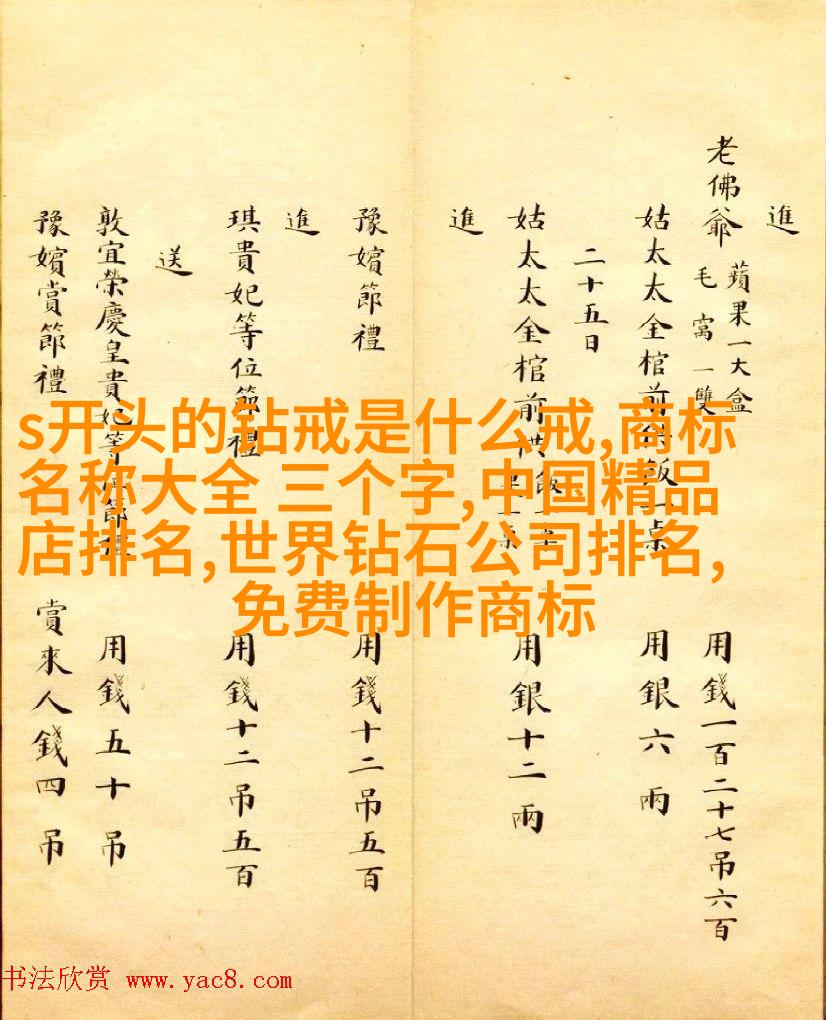 進
老佛爺 蘋果一大盒 毛窩一雙 用錢一百二十七吊六百
姑太太金棺前供飯一桌 用銀六兩
二十五日
姑太太金棺前供飯一桌 用銀十二兩
進
豫嬪節禮 用錢十二吊五百
進
琪貴妃等位節禮 用錢十二吊五百
送
敦宜榮慶皇貴妃等位節禮 用錢五十吊
豫嬪賞節禮 賞來人錢四吊
s开头的钻戒是什么戒,商标
名称大全 三个字,中国精品
店排名,世界钻石公司排名,
免费制作商标
书法欣赏 www.yac8.com